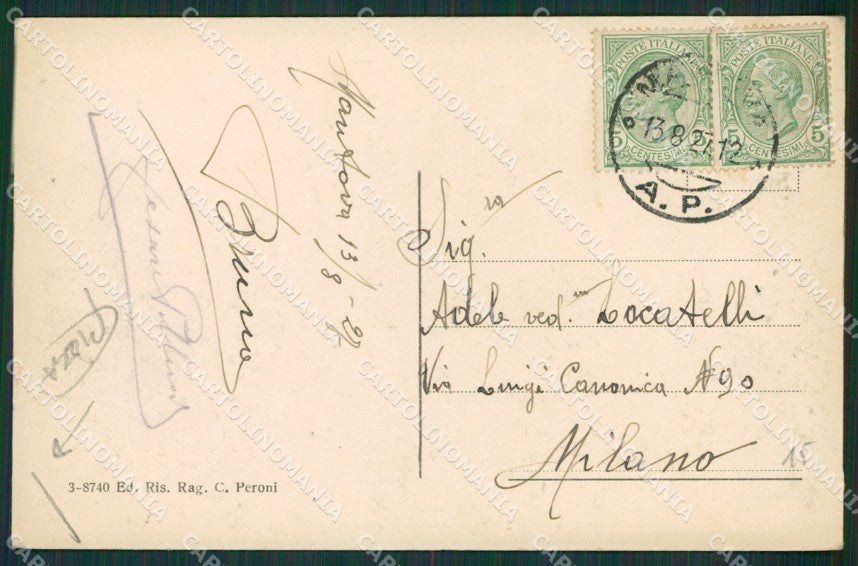 POSTE ITALIANE
5 CENTESIMI 5
POSTE ITALIANE
5 CENTESIMI 5
13.8.27.12
A. P.
Mantova 13/8-27
Bruno
Sig.ra
Adele ved.va Locatelli
Via Luigi Canonica N 90
Milano
15
3-8740 Ed. Ris. Rag. C. Peroni
CARTOLINOMANIA